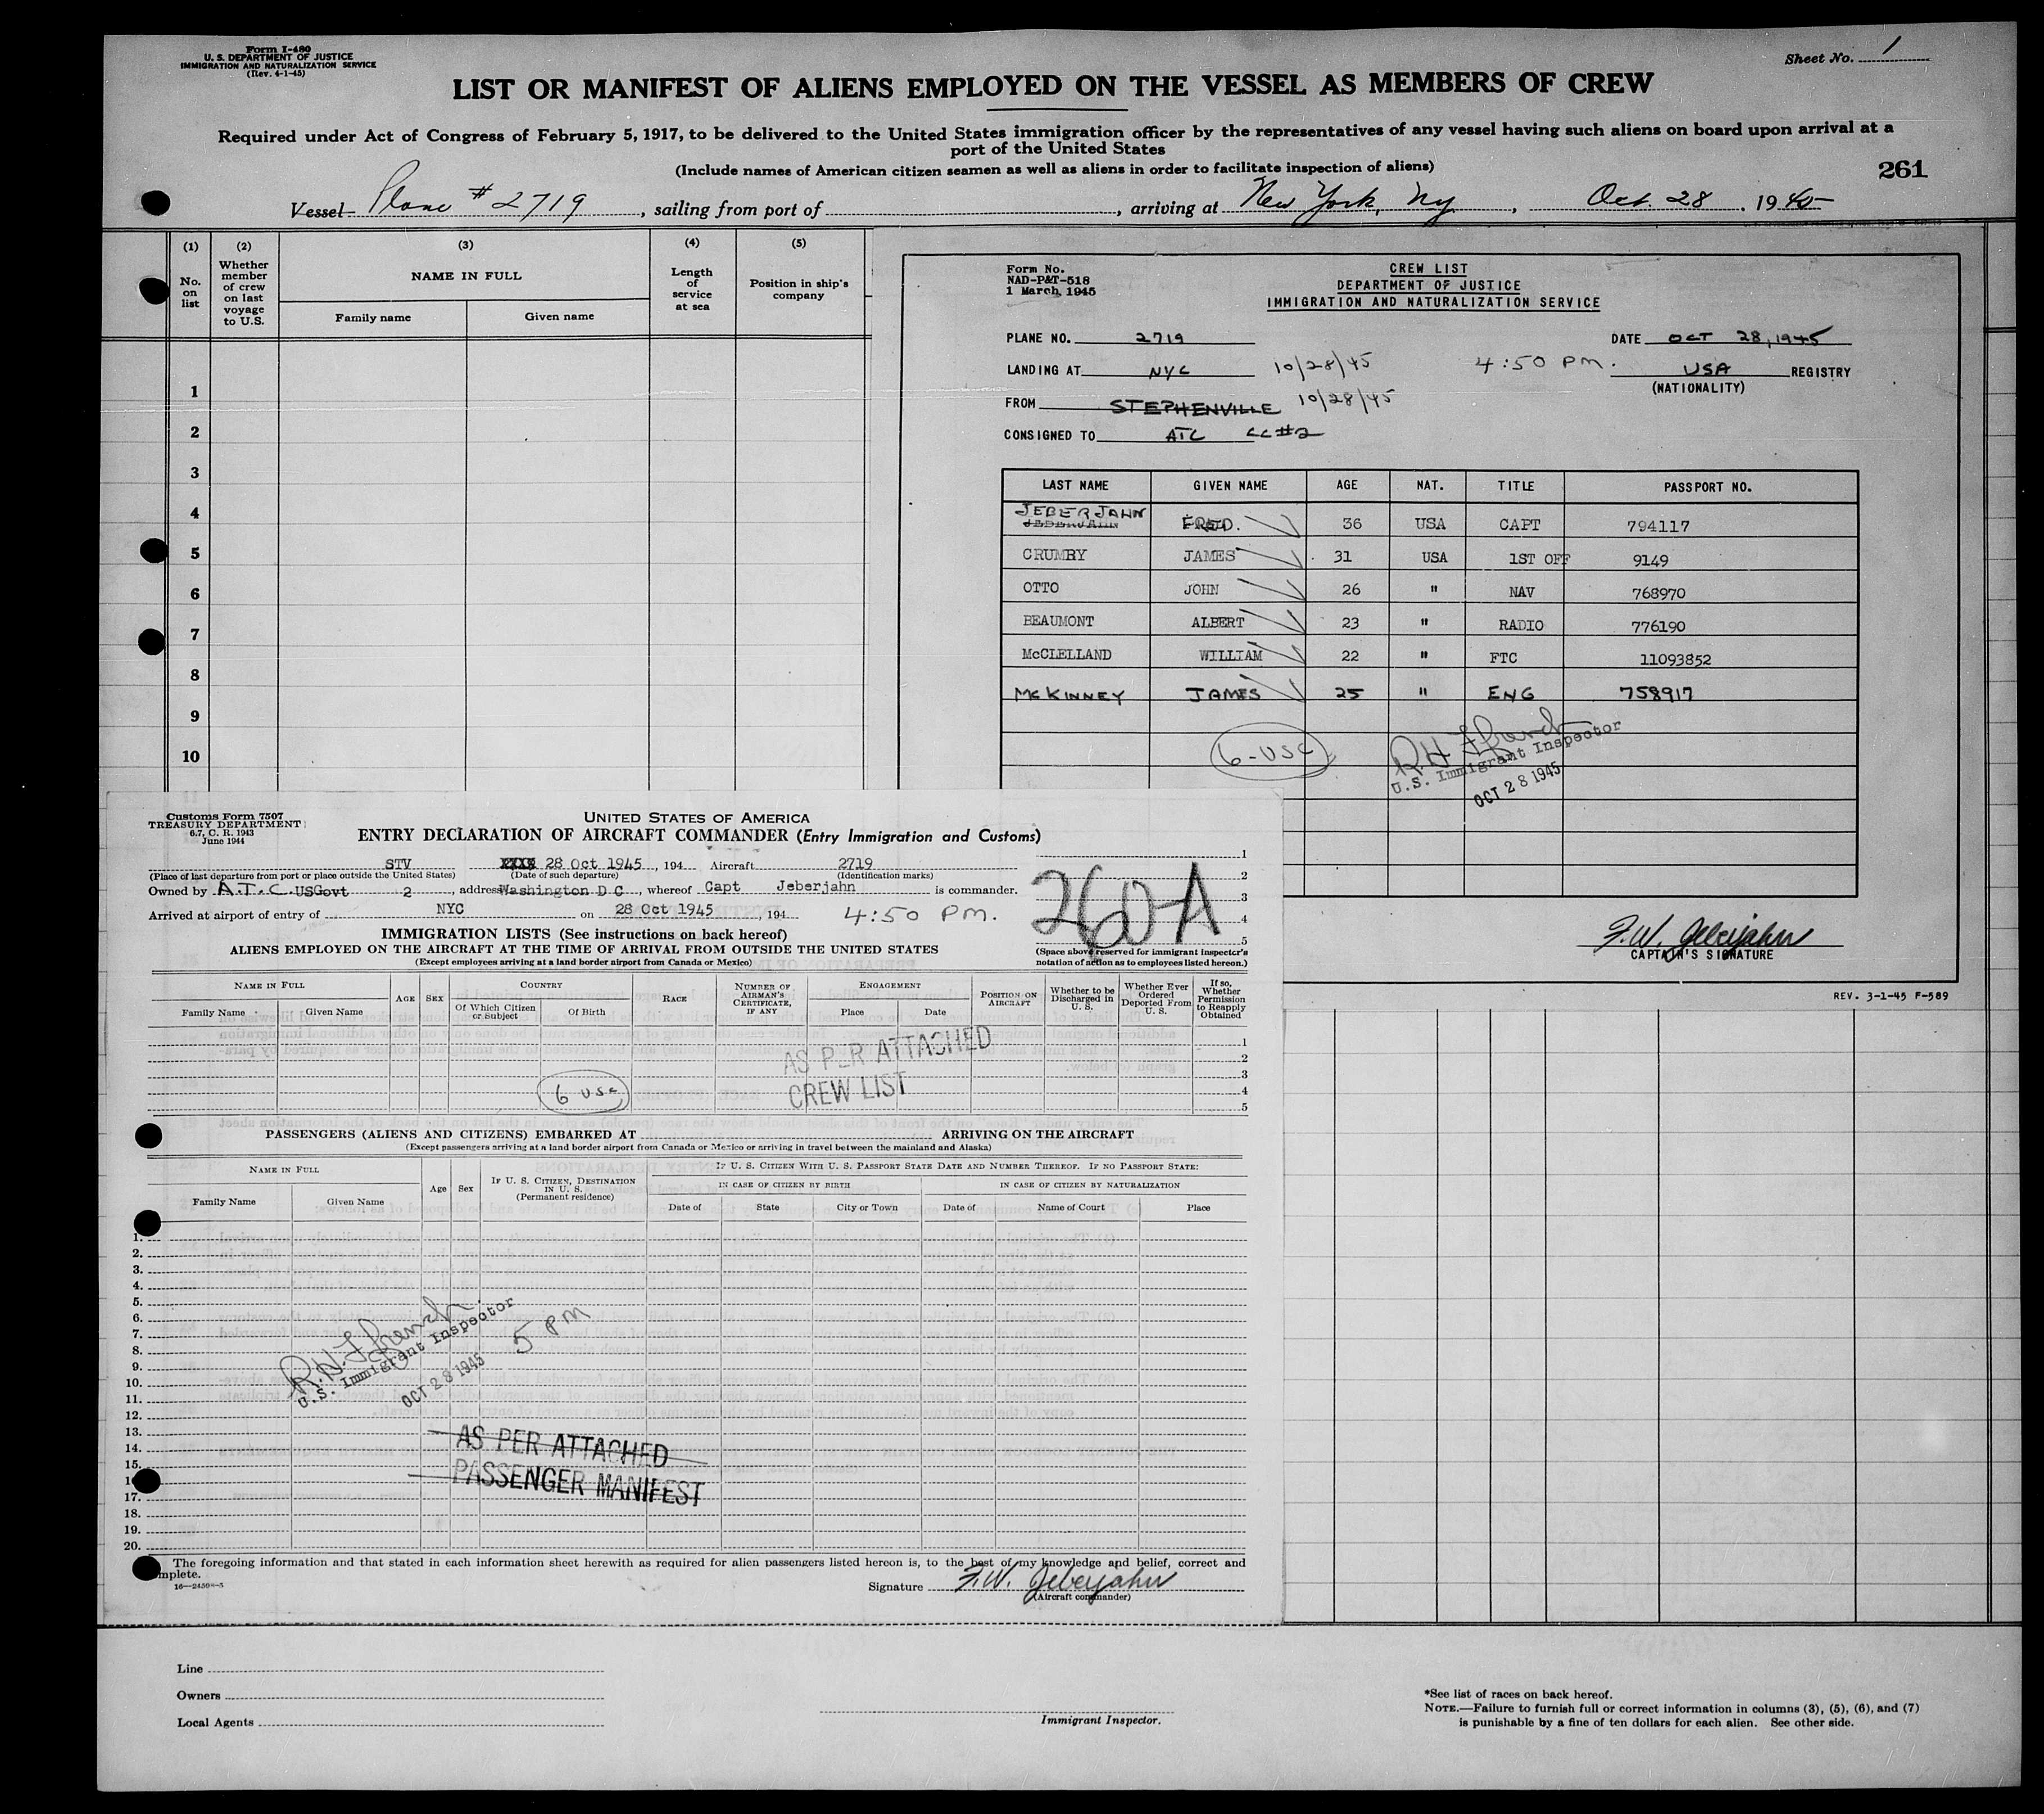 Form I-480
U. S. DEPARTMENT OF JUSTICE
IMMIGRATION AND NATURALIZATION SERVICE
(Rev. 4-1-45)
Sheet No. 1
LIST OR MANIFEST OF ALIENS EMPLOYED ON THE VESSEL AS MEMBERS OF CREW
Required under Act of Congress of February 5, 1917, to be delivered to the United States immigration officer by the representatives of any vessel having such aliens on board upon arrival at a
port of the United States
(Include names of American citizen seamen as well as aliens in order to facilitate inspection of aliens)
261
Vessel Plane # 2719, sailing from port of , arriving at New York, Ny, Oct. 28, 1945
(1) (2) (3) (4) (5)
No. on list
Whether member of crew on last voyage to U.S.
NAME IN FULL
Family name Given name
Length of service at sea
Position in ship's company
1
2
3
4
5
6
7
8
9
10
Form No.
NAD-P&T-518
1 March, 1945
CREW LIST
DEPARTMENT OF JUSTICE
IMMIGRATION AND NATURALIZATION SERVICE
PLANE NO. 2719 DATE OCT 28, 1945
LANDING AT NYC 10/28/45 4:50 PM. USA REGISTRY
(NATIONALITY)
FROM STEPHENVILLE 10/28/45
CONSIGNED TO ATC CC#2
LAST NAME GIVEN NAME AGE NAT. TITLE PASSPORT NO.
JEBERJAHN
JEBERJAHN FRED. 36 USA CAPT 794117
CRUMBY JAMES 31 USA 1ST OFF 9149
OTTO JOHN 26 " NAV 768970
BEAUMONT ALBERT 23 " RADIO 776190
McCLELLAND WILLIAM 22 " FTC 11093852
McKINNEY JAMES 25 " ENG 758917
6-USC
U.S. Immigrant Inspector
OCT 28 1945
F.W. Jeberjahn
CAPTAIN'S SIGNATURE
REV. 3-1-45 F-589
Customs Form 7507
TREASURY DEPARTMENT
6.7, C. R. 1943
June 1944
UNITED STATES OF AMERICA
ENTRY DECLARATION OF AIRCRAFT COMMANDER (Entry Immigration and Customs)
STV 28 Oct 1945, 194 Aircraft 2719
(Place of last departure from port or place outside the United States) (Date of such departure) (Identification marks)
Owned by A.T.C. USGovt 2, address Washington D C, whereof Capt Jeberjahn is commander.
Arrived at airport of entry of NYC on 28 Oct 1945, 194 4:50 PM.
1
2
3
4
5
260-A
(Space above reserved for immigrant inspector's
notation of action as to employees listed hereon.)
IMMIGRATION LISTS (See instructions on back hereof)
ALIENS EMPLOYED ON THE AIRCRAFT AT THE TIME OF ARRIVAL FROM OUTSIDE THE UNITED STATES
(Except employees arriving at a land border airport from Canada or Mexico)
NAME IN FULL
Family Name Given Name
AGE SEX
COUNTRY
Of Which Citizen or Subject Of Birth
RACE
NUMBER OF AIRMAN'S CERTIFICATE, IF ANY
ENGAGEMENT
Place Date
POSITION ON AIRCRAFT
Whether to be Discharged in U. S.
Whether Ever Ordered Deported From U. S.
If so, Whether Permission to Reapply Obtained
1
2
3
4
5
AS PER ATTACHED
CREW LIST
6 USC
PASSENGERS (ALIENS AND CITIZENS) EMBARKED AT ARRIVING ON THE AIRCRAFT
(Except passengers arriving at a land border airport from Canada or Mexico or arriving in travel between the mainland and Alaska)
NAME IN FULL
Family Name Given Name
Age Sex
IF U. S. CITIZEN, DESTINATION IN U. S.
(Permanent residence)
IF U. S. CITIZEN WITH U. S. PASSPORT STATE DATE AND NUMBER THEREOF. IF NO PASSPORT STATE:
IN CASE OF CITIZEN BY BIRTH IN CASE OF CITIZEN BY NATURALIZATION
Date of State City or Town Date of Name of Court Place
1.
2.
3.
4.
5.
6.
7.
8.
9.
10.
11.
12.
13.
14.
15.
17.
18.
19.
20.
U.S. Immigrant Inspector
OCT 28 1945
5 PM
AS PER ATTACHED
PASSENGER MANIFEST
The foregoing information and that stated in each information sheet herewith as required for alien passengers listed hereon is, to the best of my knowledge and belief, correct and
mplete.
Signature F.W. Jeberjahn
(Aircraft commander)
Line
Owners
Local Agents
Immigrant Inspector.
*See list of races on back hereof.
NOTE.—Failure to furnish full or correct information in columns (3), (5), (6), and (7)
is punishable by a fine of ten dollars for each alien. See other side.